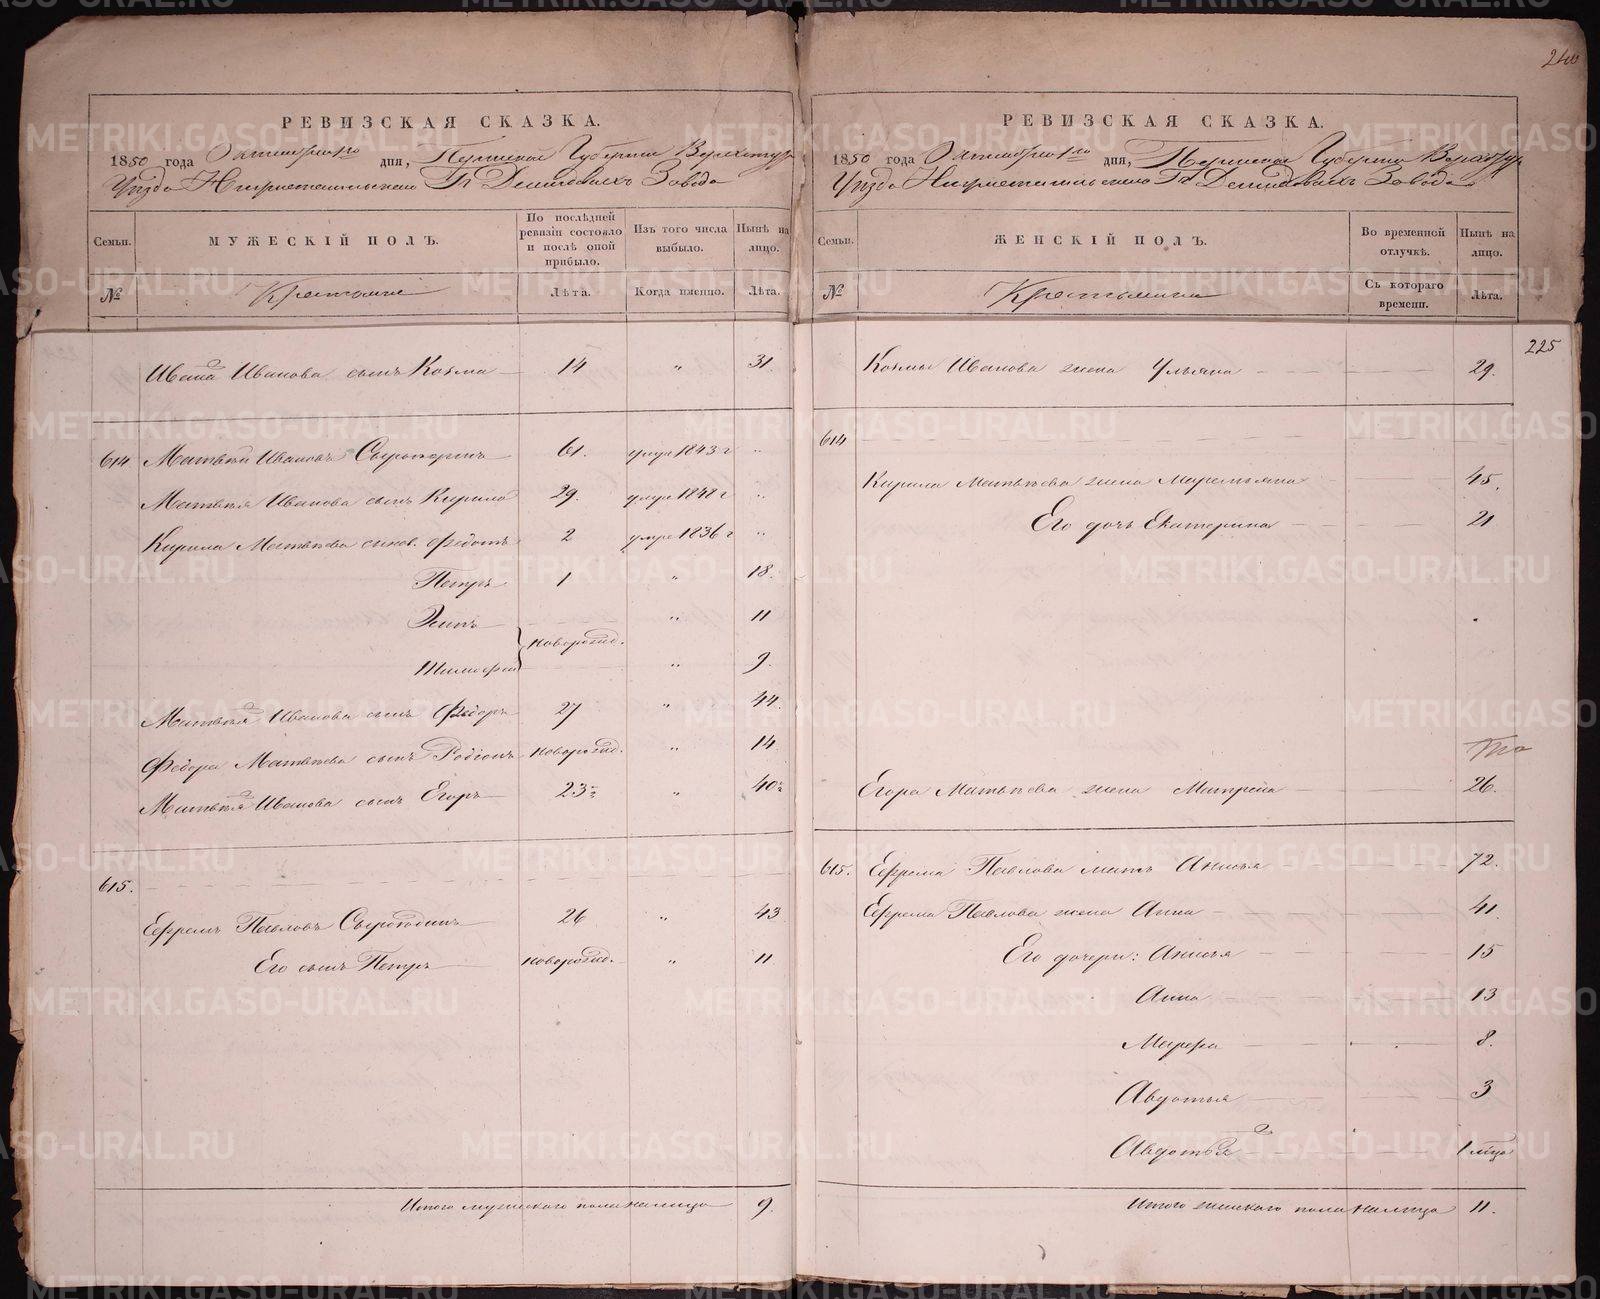 240
РЕВИЗСКАЯ СКАЗКА.
1850 года Октября 1го дня, Пермской Губернии Верхотур
Уѣзда Нижнетагильскаго Гг Демидовыхъ Завода
Семьи. МУЖЕСКІЙ ПОЛЪ. По послѣдней ревизіи состояло и послѣ оной прибыло. Изъ того числа выбыло. Нынѣ на лицо.
№ Крестьяне Лѣта. Когда именно. Лѣта.
Ивана 2 Иванова сынъ Козма 14 " 31.
614 Матвѣй Ивановъ 61. умре 1843 г "
Матвѣя Иванова сынъ Кирило 29. умре 1848 г "
Кирила Матвѣева сынов. Федотъ 2 умре 1836 г "
Петръ 1 " 18.
Осипъ " 11
новорожд.
Тимофей " 9.
Матвѣя 2 Иванова сынъ Федоръ 27 " 44.
Федора Матвѣева сынъ Родіонъ новорожд. " 14
Матвѣя 3 Иванова сынъ Егоръ 23½ " 40½
615.
Ефремъ Павловъ 26 " 43
Его сынъ Петръ новорожд. " 11
Итого мужескаго пола налицо 9.
РЕВИЗСКАЯ СКАЗКА.
1850 года Октября 1го дня, Пермской Губернии Верхотур
Уѣзда Нижнетагильскаго Гг Демидовыхъ Завода
Семьи. ЖЕНСКІЙ ПОЛЪ. Во временной отлучкѣ. Нынѣ на лицо.
№ Крестьянки Съ котораго времени. Лѣта.
225
Козмы Иванова жена Ульяна 29.
614
Кирила Матвѣева жена Маремьяна 45.
Его дочь Екатерина 21
Егора Матвѣева жена Матрена 26.
615. Ефрема Павлова мать Анисья 72.
Ефрема Павлова жена Анна 41.
Его дочери: Анисья 15
Анна 13
Марфа 8.
Авдотья 3
Авдотья 2 1 мѣсц
Итого женскаго пола налицо 11.
METRIKI.GASO-URAL.RU